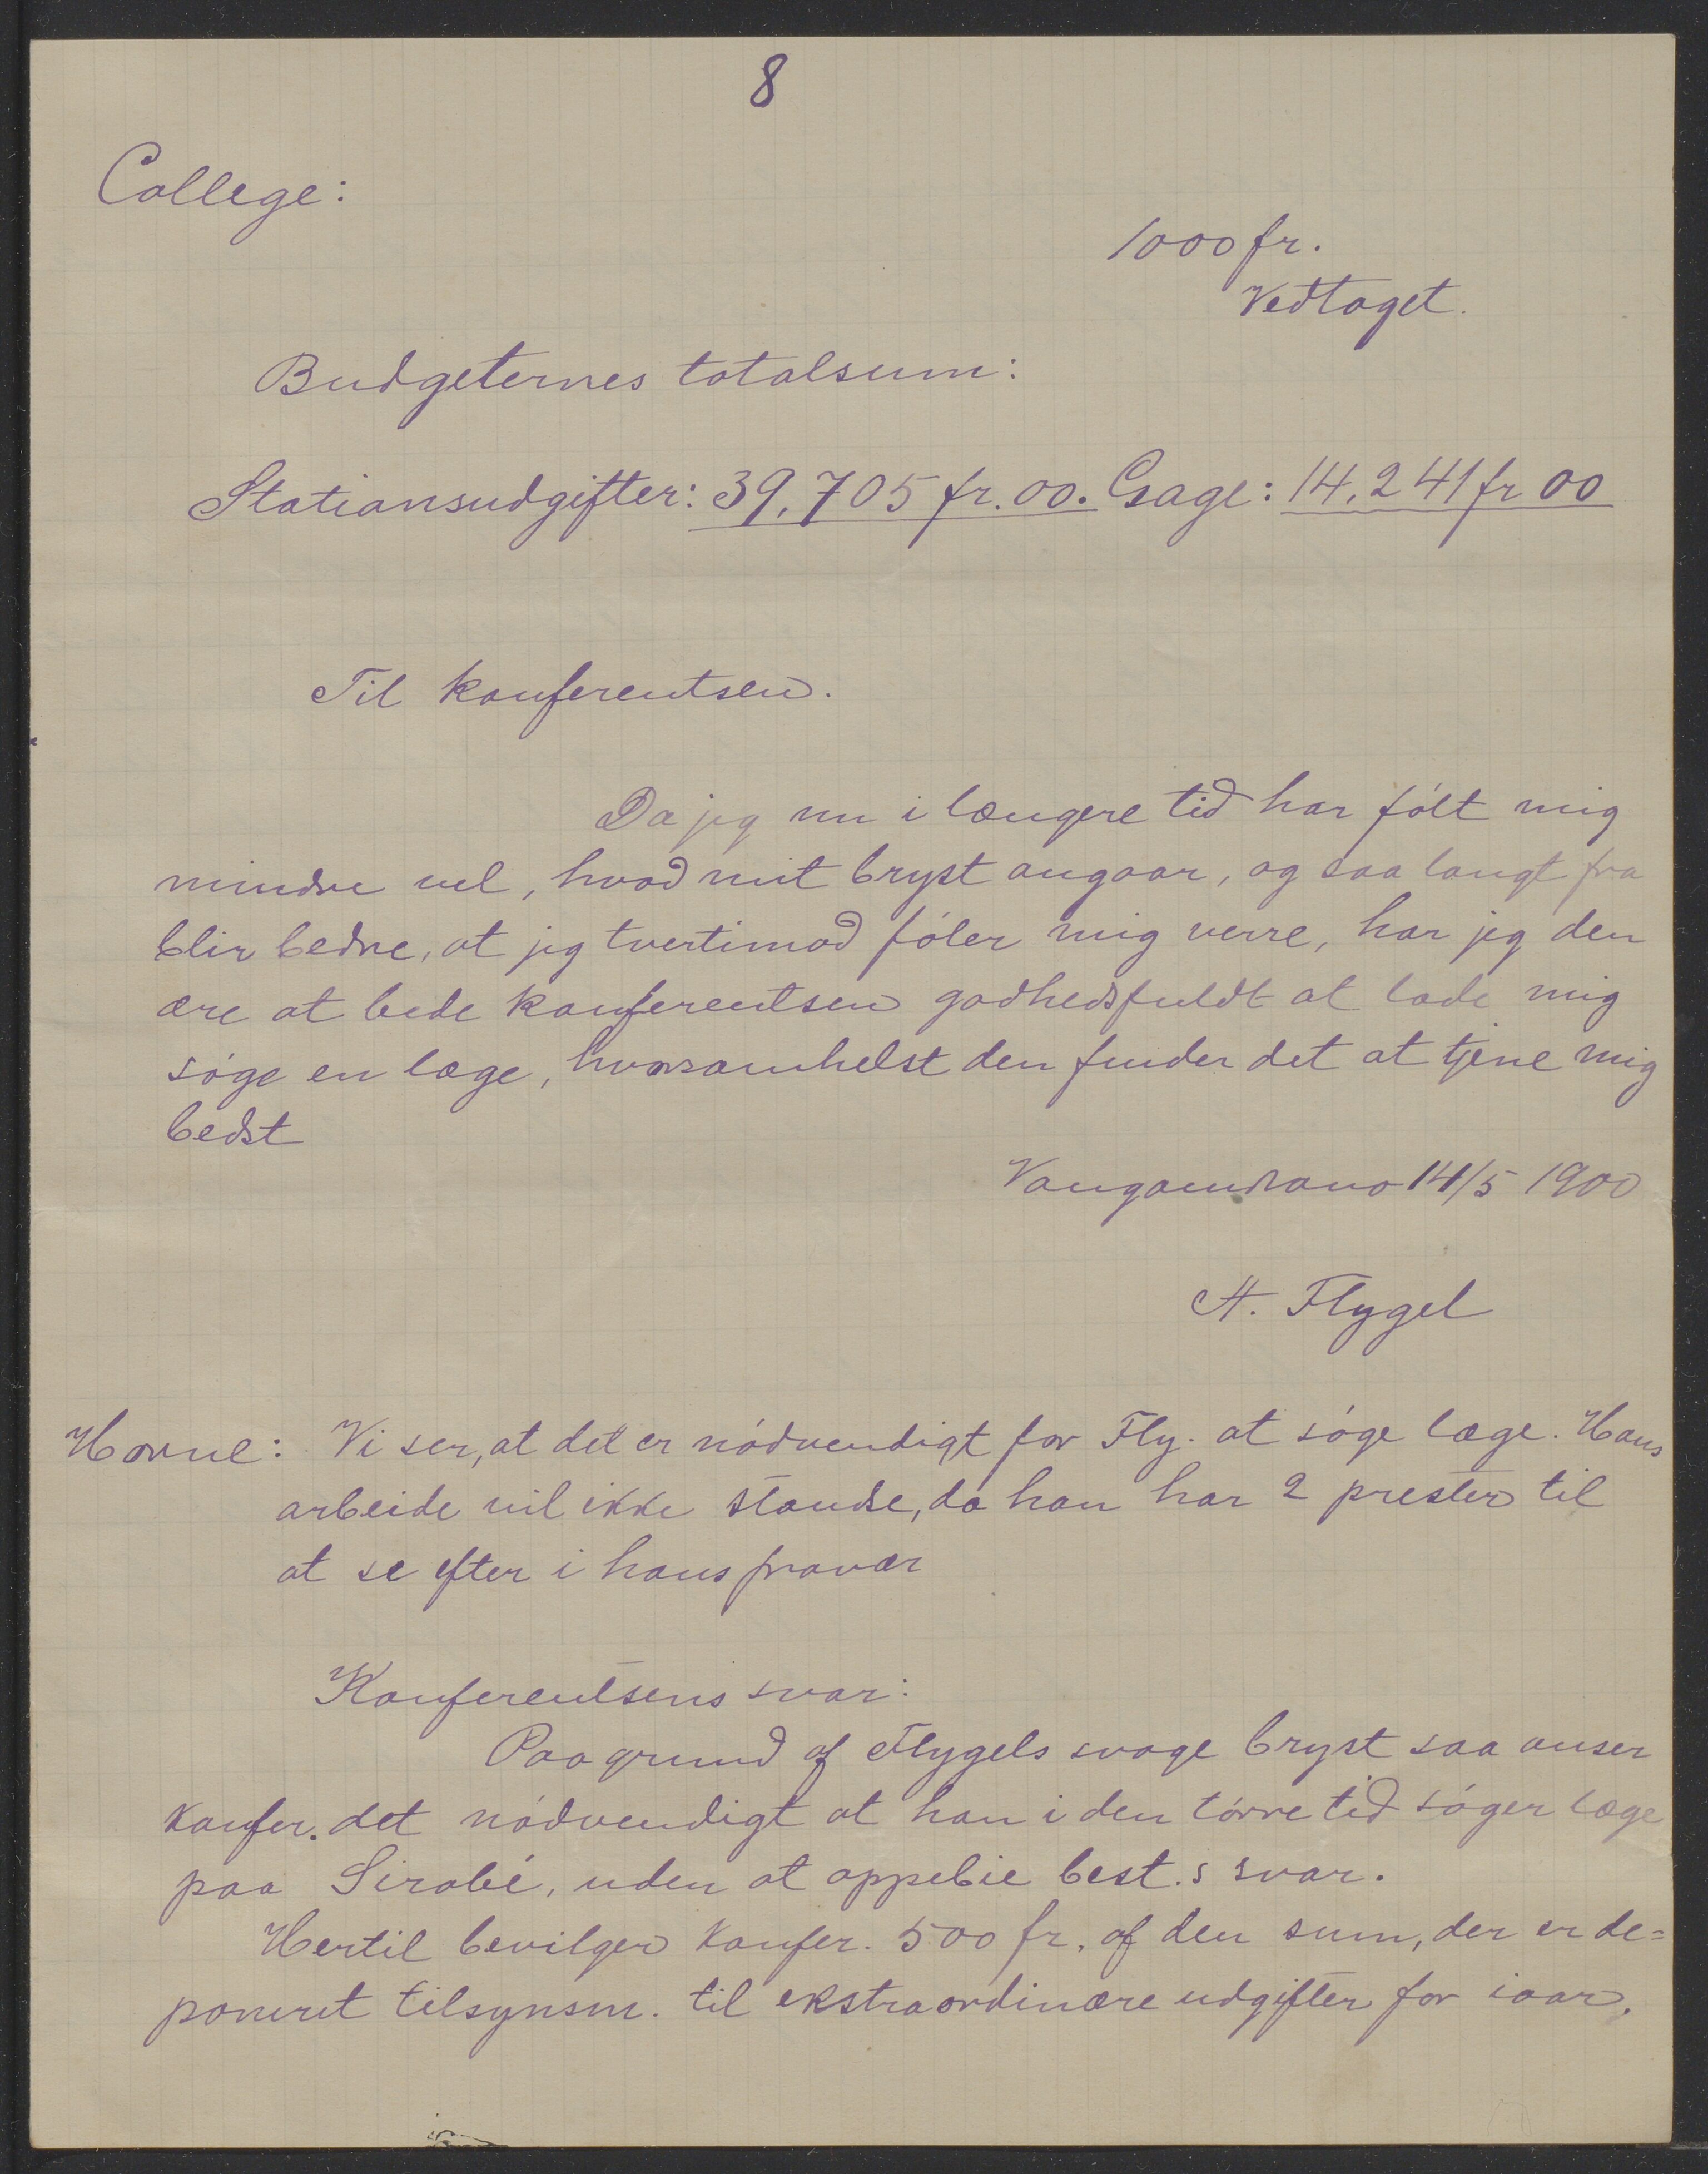 8
College:
1000 fr.
Vedtaget.
Budgeternes totalsum:
Stationsudgifter: 39,705 fr. 00. Gage: 14,241 fr 00
Til konferentsen.
Da jeg nu i længere tid har fólt mig
mindre vel, hvad mit bryst angaar, og saa langt fra
blir bedre, at jeg tvertimod fóler mig verre, har jeg den
ære at bede konferentsen godhedsfuldt at lade mig
sóge en læge, hvorsomhelst den finder det at tjene mig
bedst
Vangaindrano 14/5 1900
A. Flygel
Horne: Vi ser, at det er nódvendigt for Fly. at sóge læge. Hans
arbeide vil ikke standse, da han har 2 prester til
at se efter i hans fravær
Konferentsens svar:
Paa grund af Flygels svage bryst saa anser
konfer. det nódvendigt at han i den tórre tid sóger læge
paa Sirabé, uden at oppebie best.s svar.
Hertil bevilger konfer. 500 fr. af den sum, der er de=
poneret tilsynsm. til ekstraordinære udgifter for iaar.